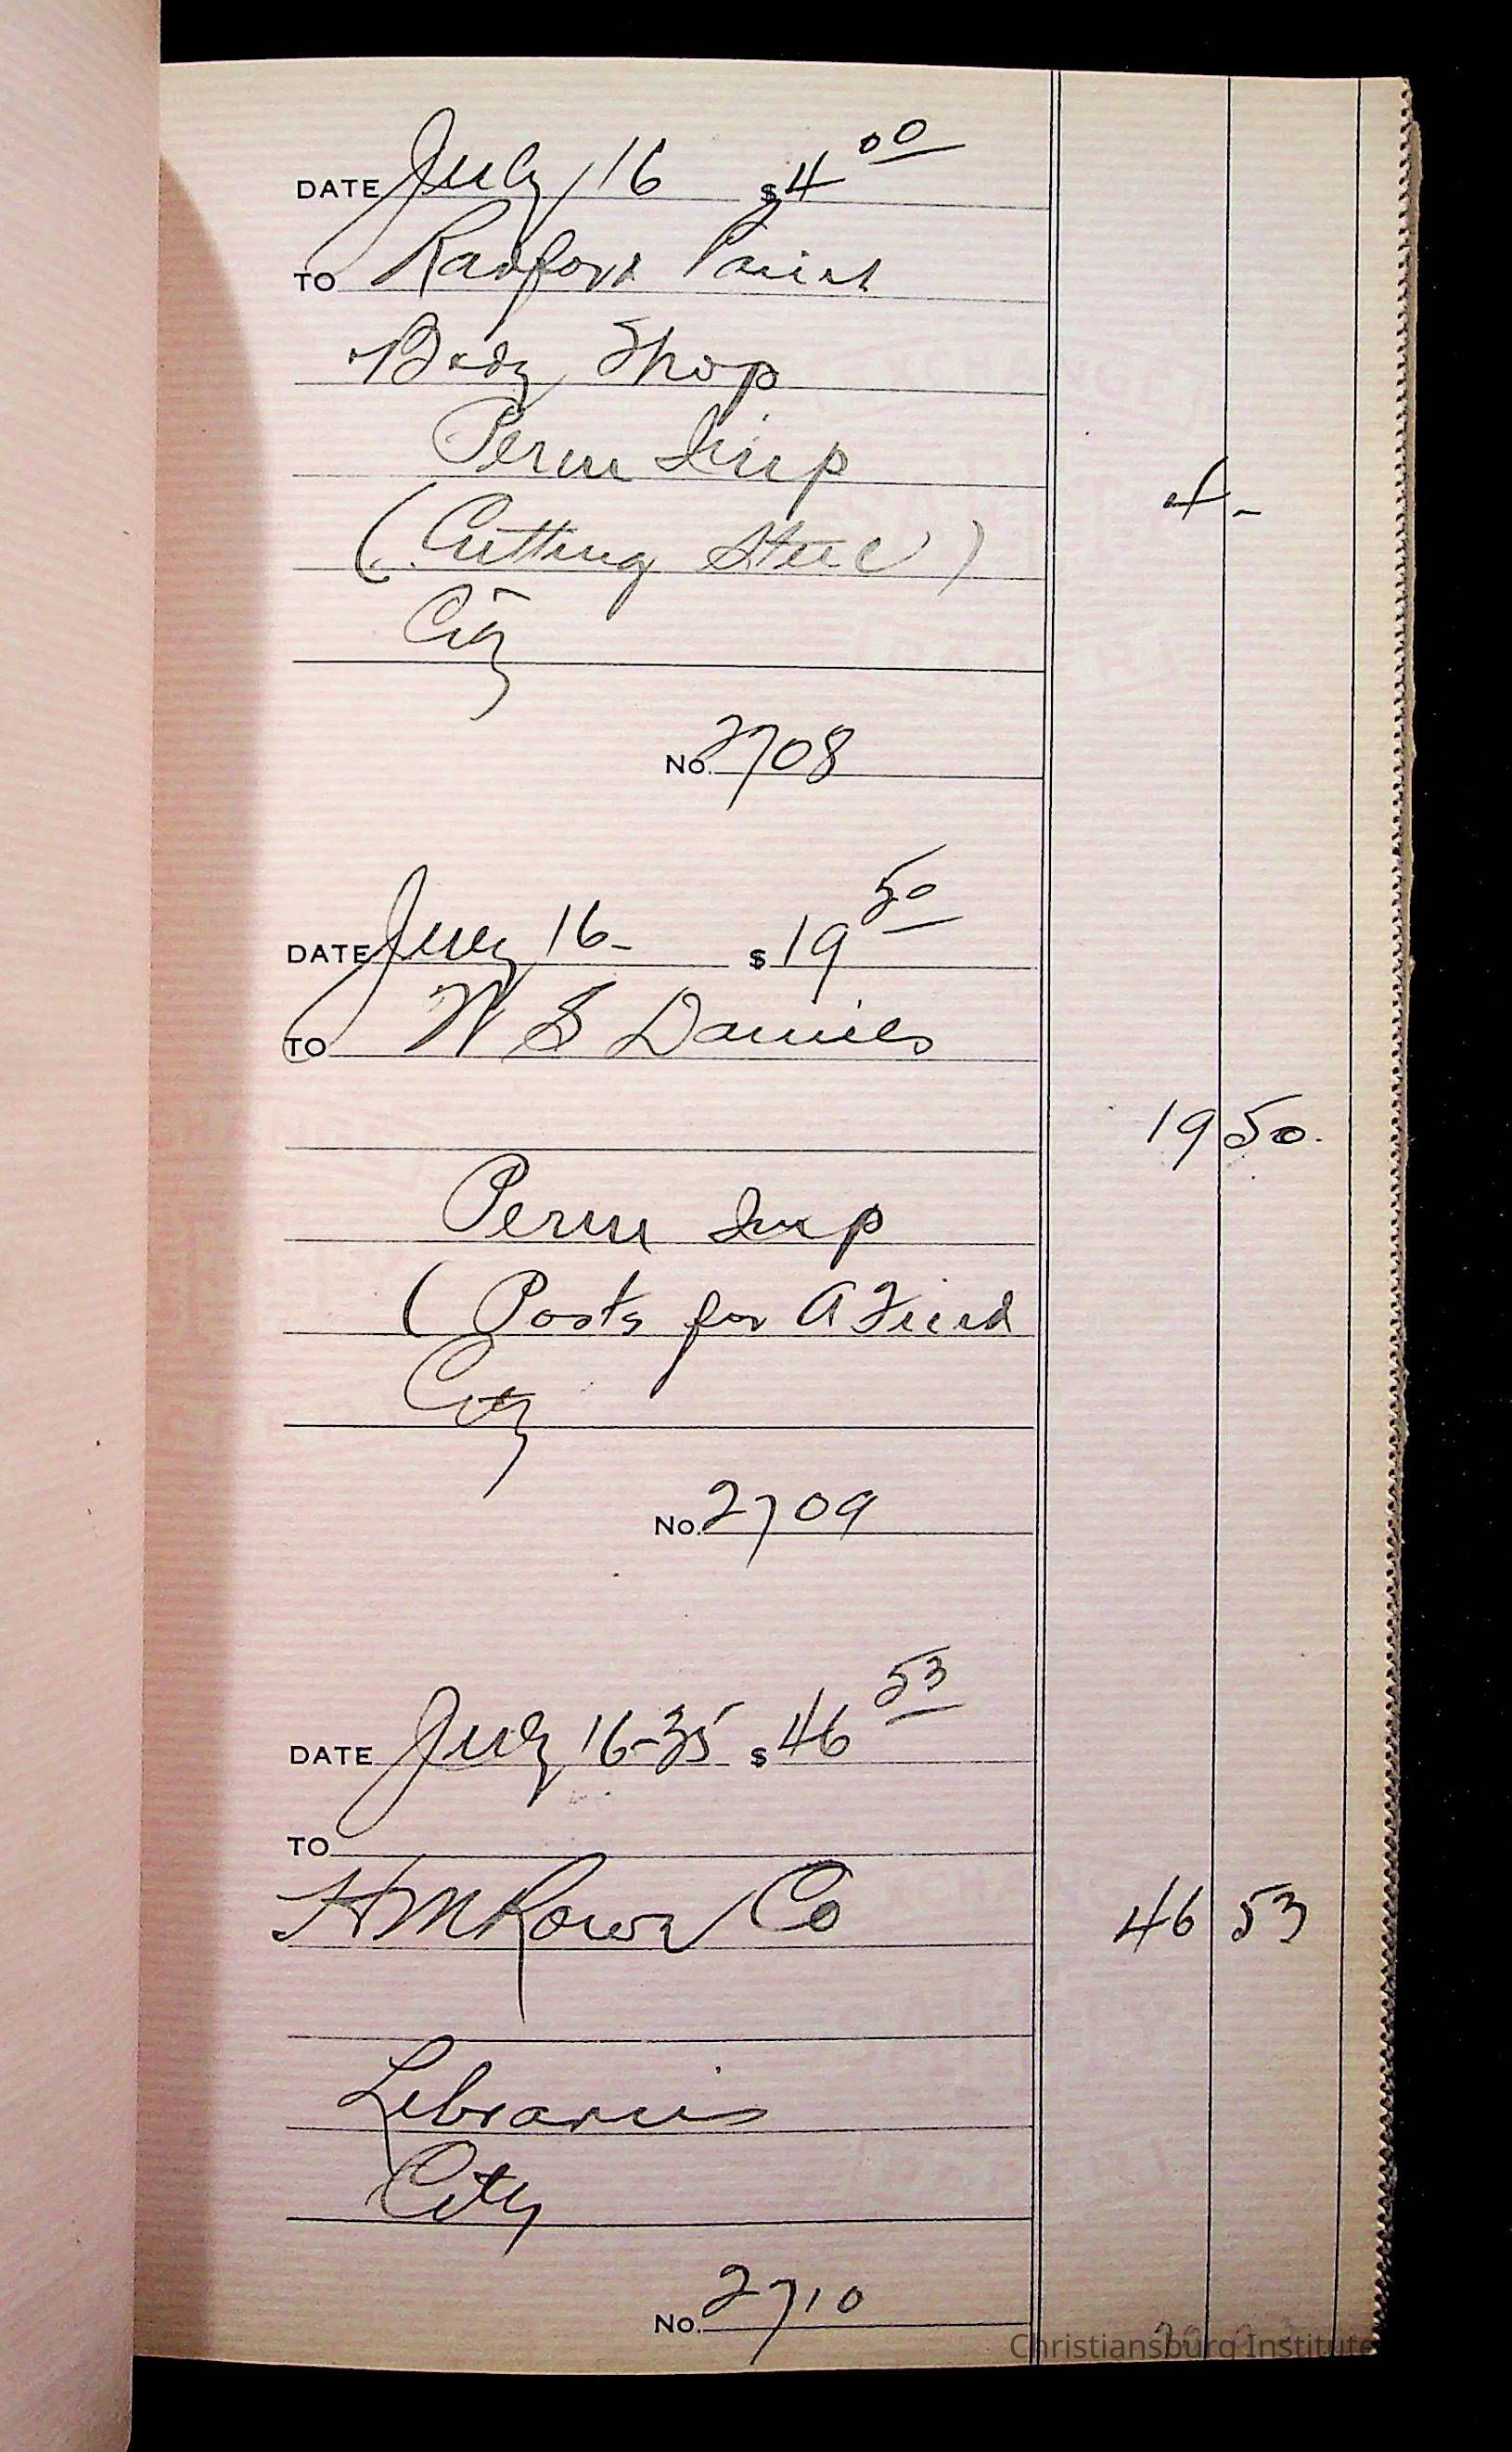 DATE July 16 $4 00
TO Radford Paint
Body Shop
Perm Imp
4 -
(Cutting Steel)
City
No. 2708
DATE July 16- $19 50
TO W S Daniels
19 50.
Perm Imp
( Posts for A Field
City
No. 2709
DATE July 16-35 $46 53
TO
H M Rowe Co
46 53
Libraries
City
No. 2710
Christiansburg Institute